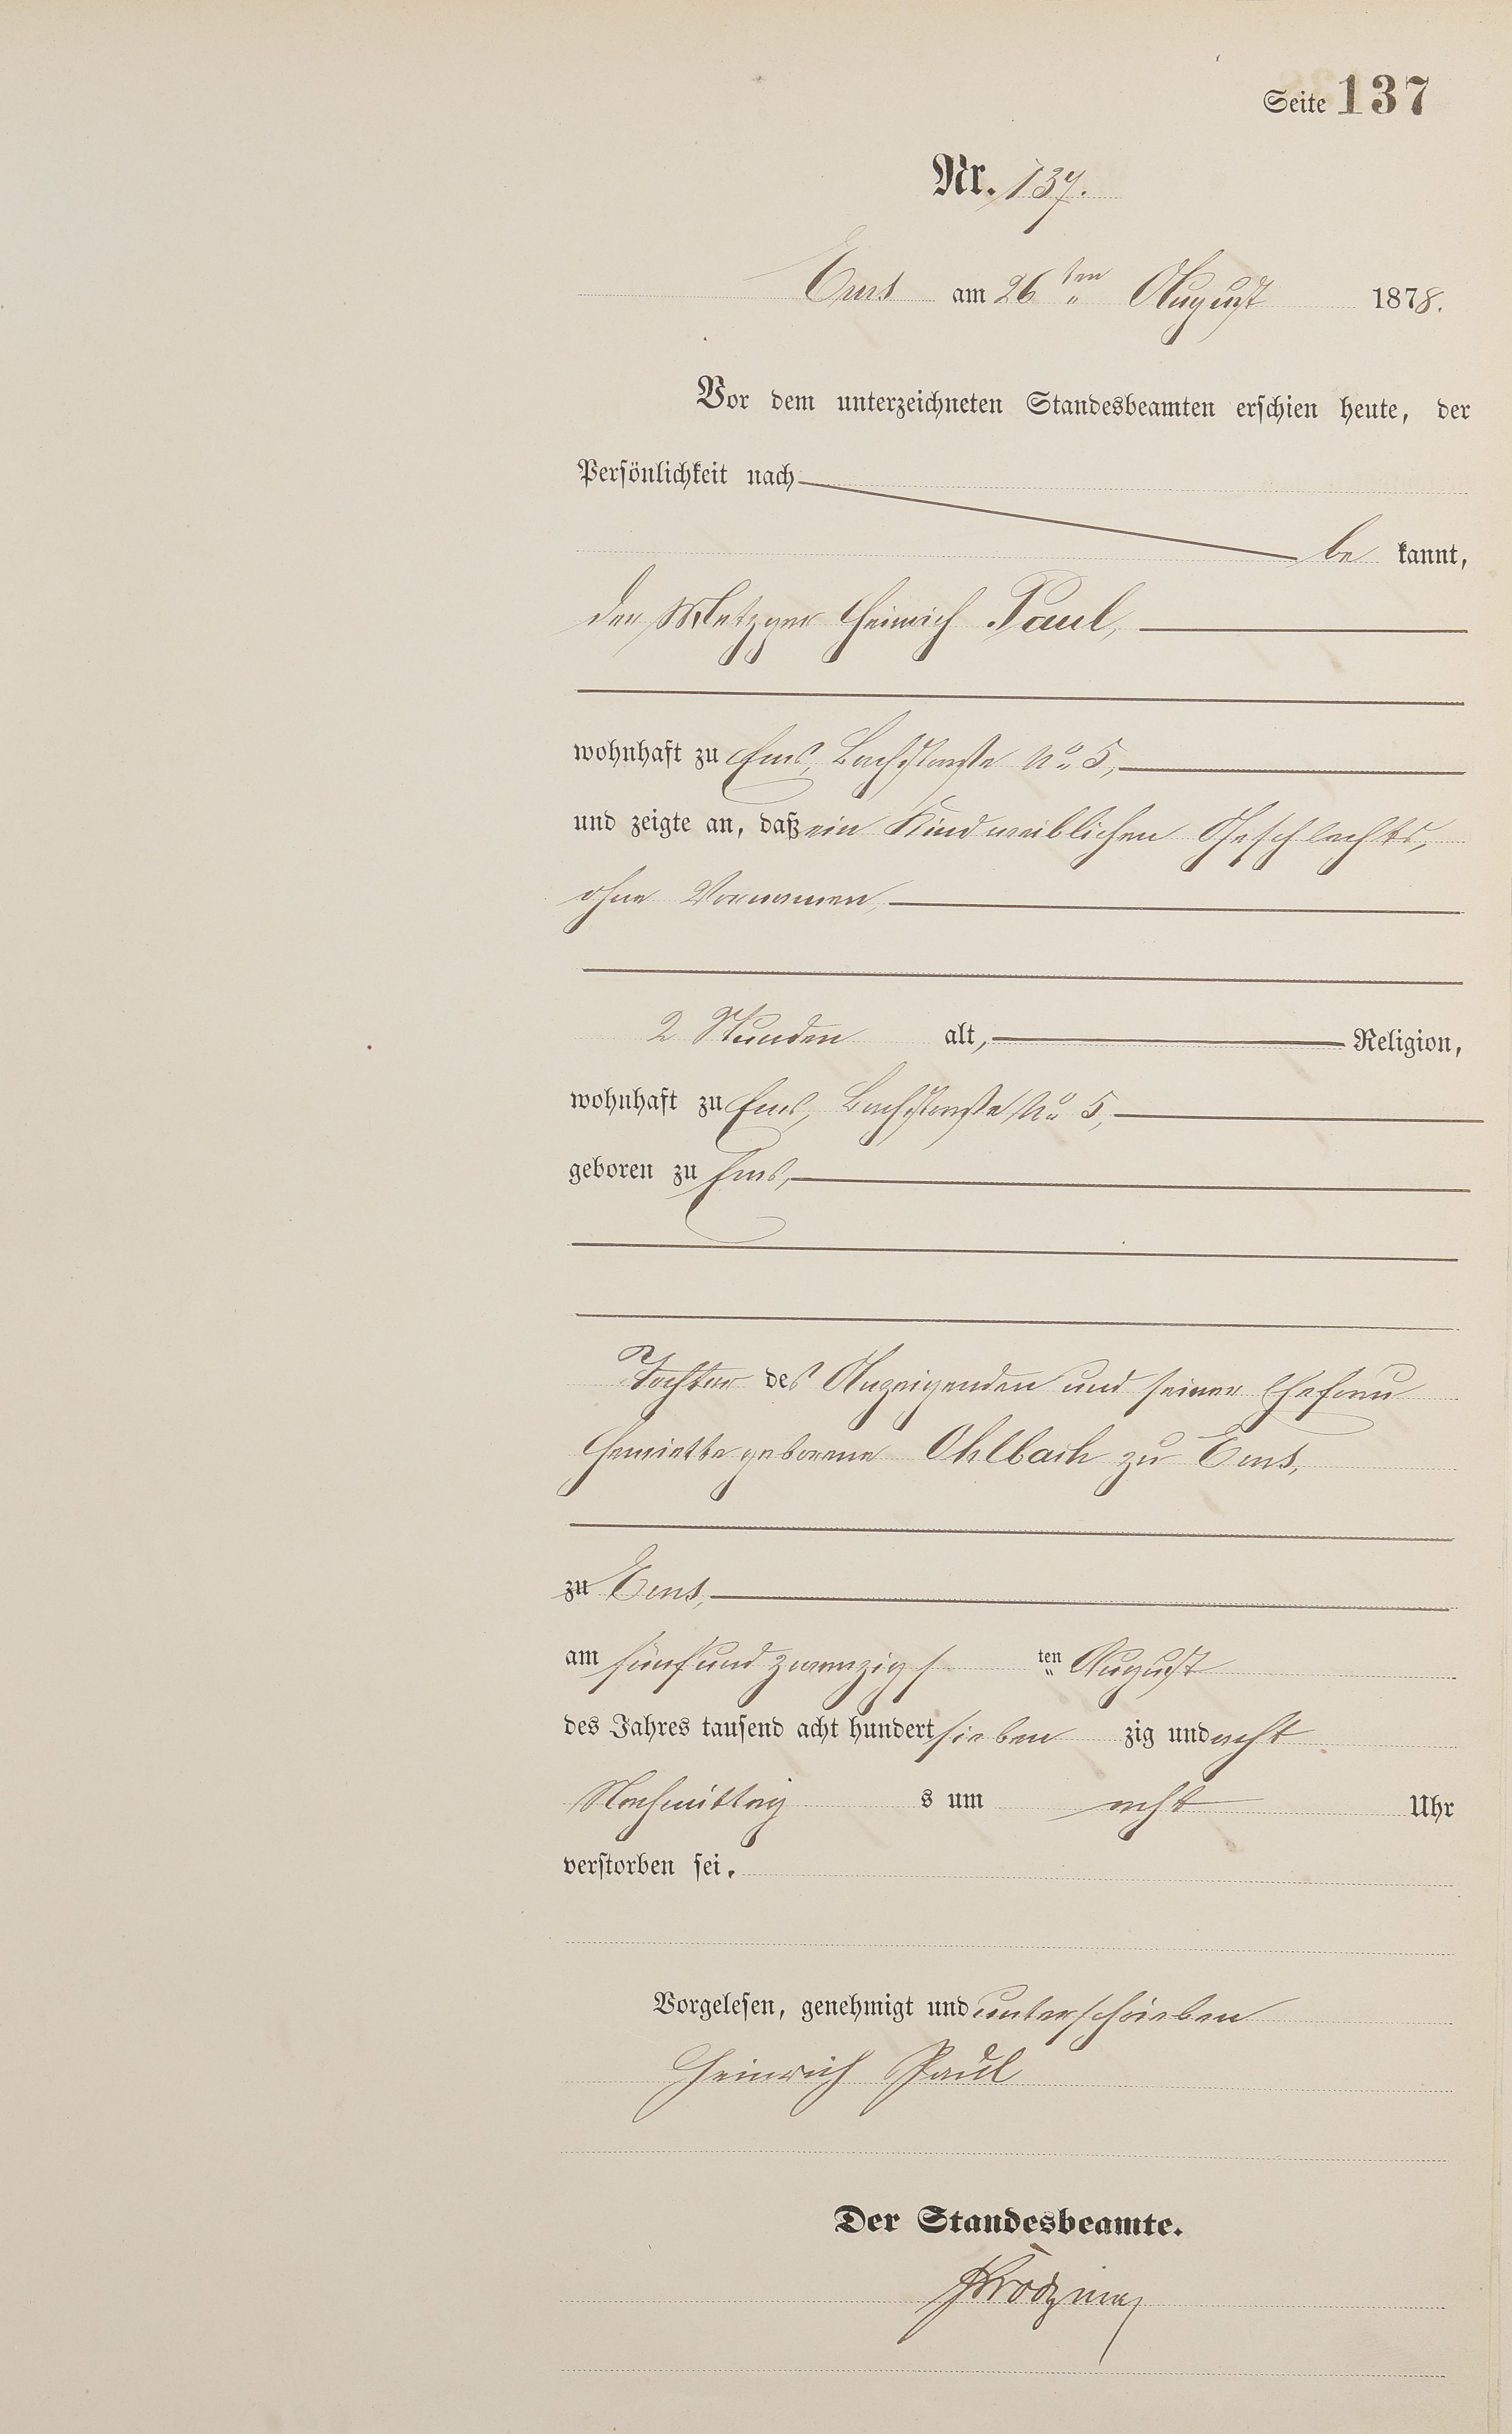 Seite 137
Nr. 137.
Ems am 26ten August 1878.
Vor dem unterzeichneten Standesbeamten erschien heute, der
Persönlichkeit nach
be kannt,
der Metzger Heinrich Paul,
wohnhaft zu Ems, Bachstraße No 5,
und zeigte an, daß ein Kind weiblichen Geschlechts,
ohne Vornamen,
2 Stunden alt, Religion,
wohnhaft zu Ems, Bachstraße No 5,
geboren zu Ems,
Tochter des Anzeigenden und seiner Ehefrau
Henriette geborene Ohlbach zu Ems,
zu Ems,
am fünfundzwanzigs ten August
des Jahres tausend acht hundert sieben zig und acht
Nachmittag s um acht Uhr
verstorben sei.
Vorgelesen, genehmigt und unterschrieben
Heinrich Paul
Der Standesbeamte.